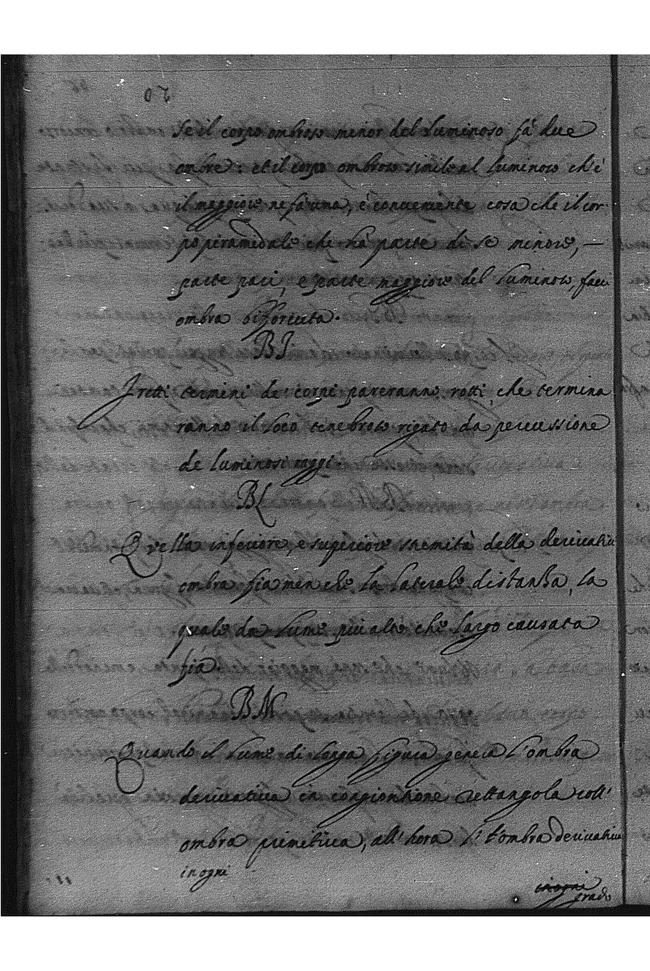 Se il corpo ombroso minor del luminoso fà due
ombre: et il corpo ombroso simile al luminoso ch'è
il maggiore ne fà una, è conveniente cosa che il cor
po piramedale che hà parte di se minore, —
parte pari, e parte maggiore del luminoso, facci
ombra bifforcuta.
BI.
I retti termini de' corpi pareranno rotti, che termina
ranno il loco tenebroso rigato da percussione
de luminosi raggi
BL
Quella inferiore, e superiore stremità della derivativa
ombra fia men che la laterale distanza, la
quale da lume più alto che largo causata
fia
BM
Quando il lume di longa figura genera l'ombra
derivativa in congiontione rettangola coll'
ombra primitiva, all'hora l'ombra derivativa
in ogni
in ogni
grado